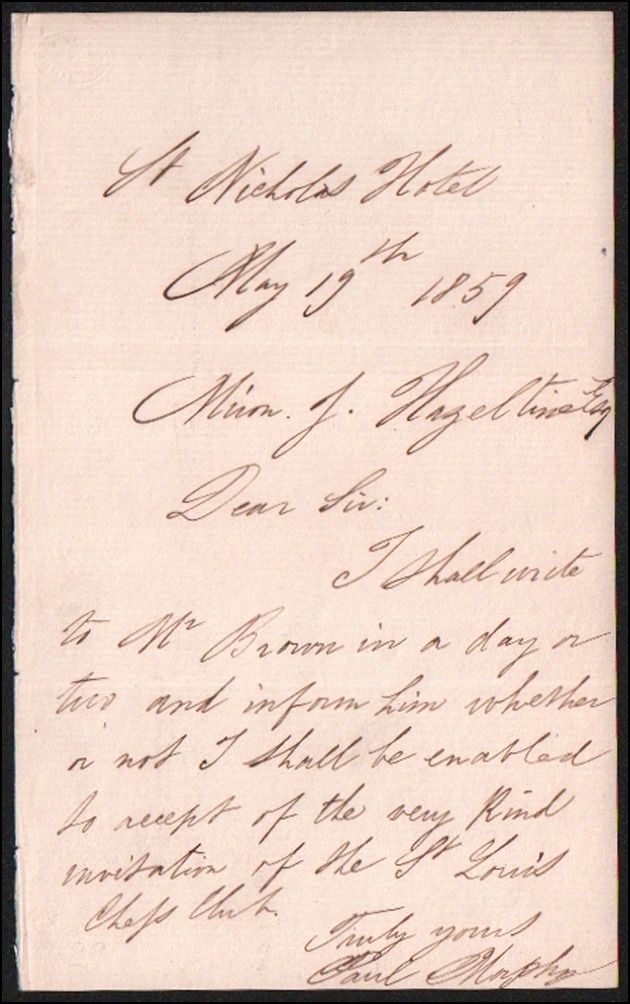 St Nicholas Hotel
May 19th 1859
Miron. J. Hazeltine Esq
Dear Sir:
I shall write
to Mr Brown in a day or
two and inform him whether
or not I shall be enabled
to accept of the very kind
invitation of the St Louis
Chess Club.
Truly yours
Paul Morphy